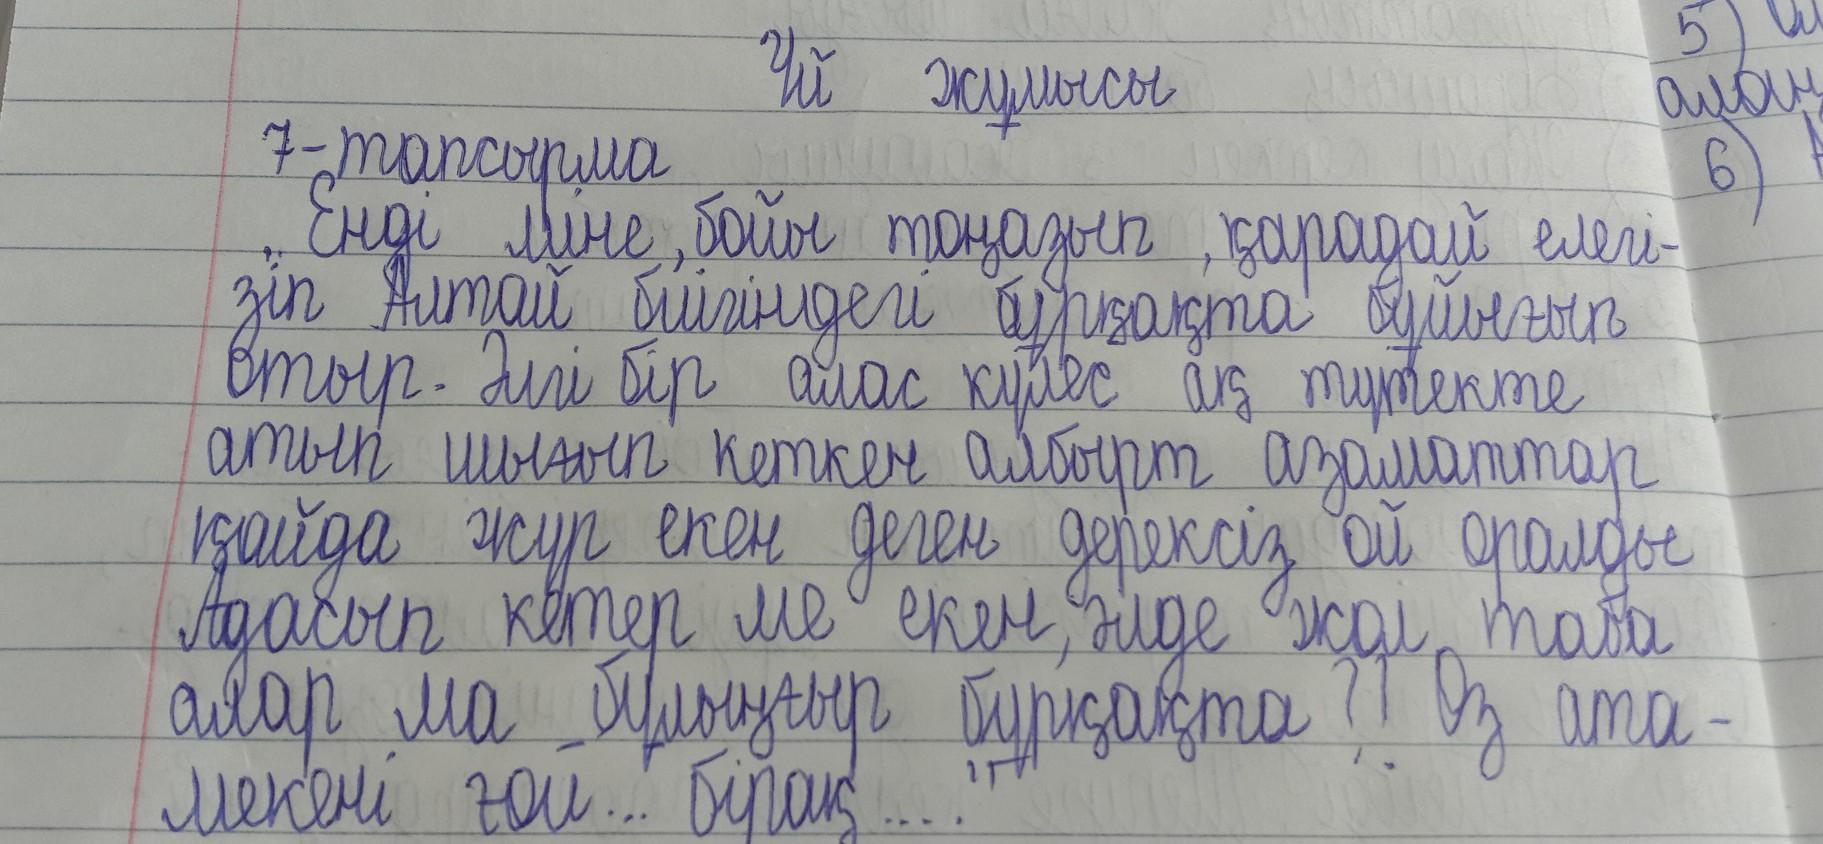 Үй жұмысы
7-тапсырма
„Енді міне, бойы тоңазып, қарадай елегі-
зіп Алтай биігіндегі бұрқақта бұйығып
отыр. Әлгі бір алас күлес ақ түтекте
атып шығып кеткен албырт азаматтар
қайда жүр екен деген дерексіз ой оралды
Адасып кетер ме екен, әлде жол таба
алар ма бұлыңғыр бұрқақта?! Өз ата-
мекені ғой... бірақ...."
5)
алаң
6)